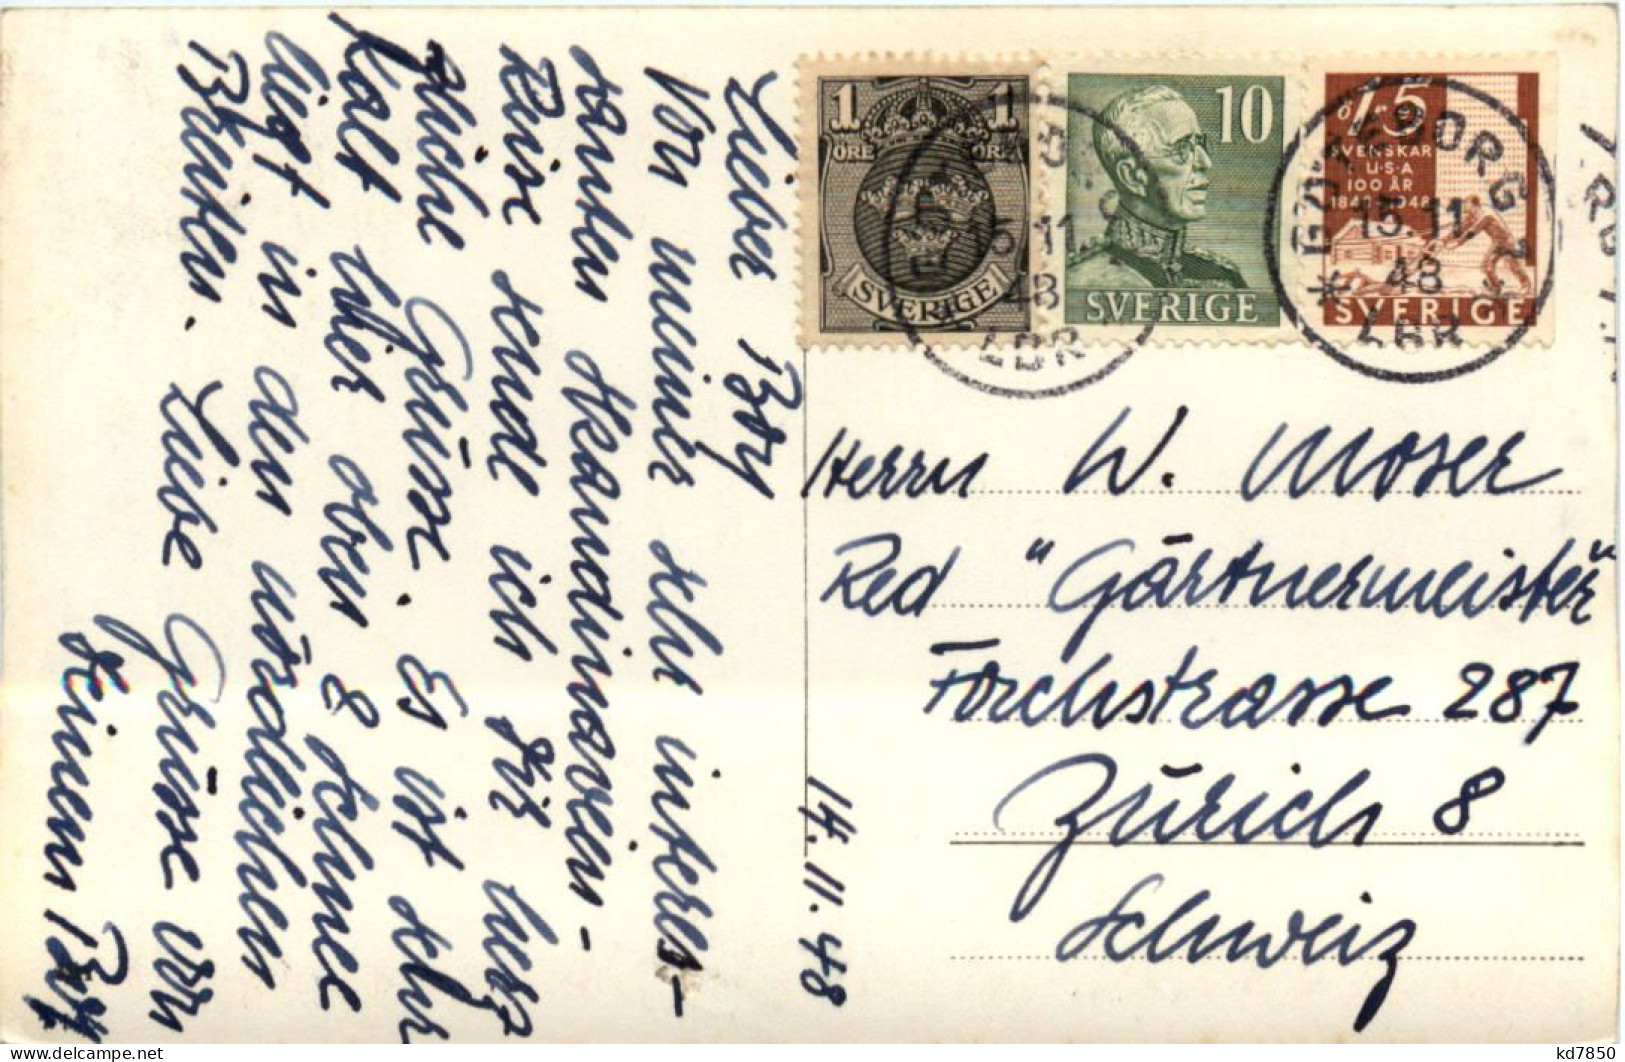 Lieber Boy
Von meiner sehr interes-
santen Skandinavien-
Reise sende ich Dir herz
liche Grüsse. Es ist sehr
kalt hier oben & Schnee
liegt in den nördlichen
Breiten. Liebe Grüsse von
Deinem Boy
14.11.48
1 1
ÖRE ÖRE
SVERIGE
10
SVERIGE
15
SVENSKAR
U·S·A
100 ÅR
1848 1948
SVERIGE
15.11.
48
LBR
GÖTEBORG 1
15.11.
48
LBR
Herrn W. Moser
Red "Gärtnermeister"
Forchstrasse 287
Zürich 8
Schweiz
kd7850